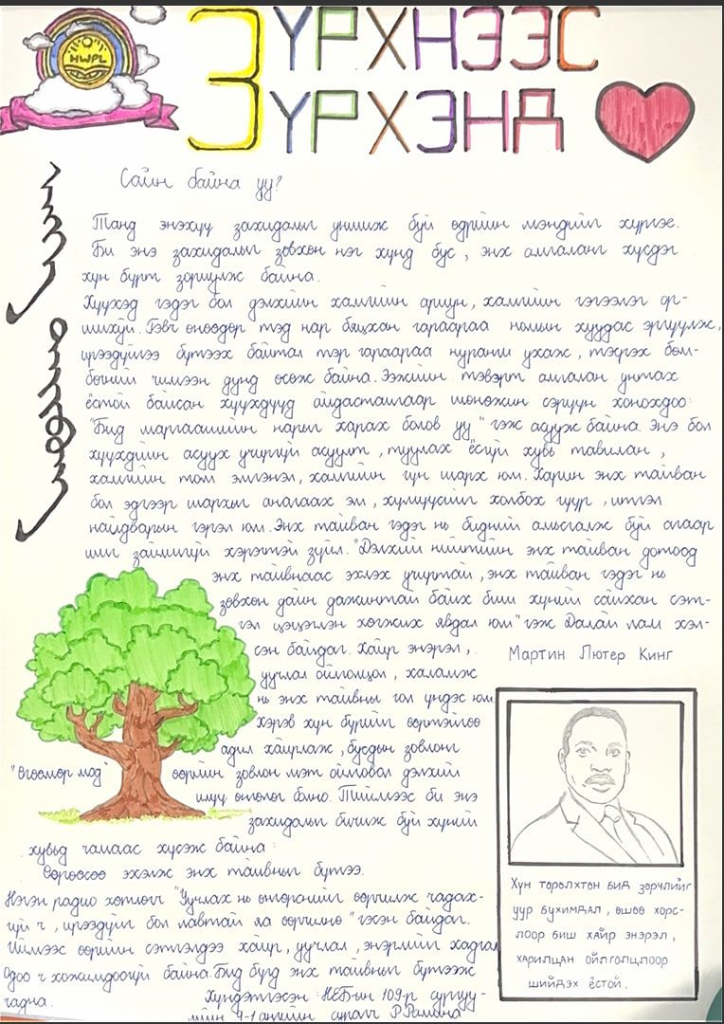 HWPL
ЗҮРХНЭЭС
ЗҮРХЭНД
Сайн байна уу?
Танд энэхүү захидалыг уншиж буй өдрийн мэндийг хүргэе.
Би энэ захидалыг зөвхөн нэг хүнд бус, энх амгаланг хүсдэг
хүн бүрт зориулж байна.
Хүүхэд гэдэг бол дэлхийн хамгийн ариун, хамгийн гэгээлэг ор-
шихүй. Гэвч өнөөдөр тэд нар бяцхан гараараа номын хуудас эргүүлж,
ирээдүйгээ бүтээх байтал тэр гараараа нуранги ухаж, тэсрэх бөм-
бөгний чимээн дунд өсөж байна. Ээжийн тэвэрт амгалан унтах
ёстой байсан хүүхдүүд айдасташгаар шөнөжин сэрүүн хонохдоо
"Бид маргаашийн нарыг харах болов уу" гэж асууж байна. Энэ бол
хүүхдийн асуух учиргүй асуулт, туулах ёсгүй хувь тавилан,
хамгийн том эмгэнэл, хамгийн гүн шарх юм. Харин энх тайван
бол эдгээр шархыг анагаах эм, хүмүүсийг холбох гүүр, итгэл
найдварын гэрэл юм. Энх тайван гэдэг нь бидний амьсгалж буй агаар
шиг зайлшгүй хэрэгтэй зүйл. "Дэлхий нийтийн энх тайван дотоод
энх тайвнаас эхлэх учиртай, энх тайван гэдэг нь
зөвхөн дайн дажингүй байх биш хүний сайхан сэт-
гэл цэцэглэн хөгжих явдал юм" гэж Далай лам хэл-
сэн байдаг. Хайр энэрэл,
уучлал ойлголцол, халамж
нь энх тайвны гол үндэс юм
хэрэв хүн бүрийг өөртэйгөө
адил хайрлаж, бусдын зовлонг
"Өгөөмөр мод" өөрийн зовлон мэт ойлговол дэлхий
илүү өнгөлөг болно. Тиймээс би энэ
захидалыг бичиж буй хүний
хувьд чамаас хүсэж байна:
Өөрөөсөө эхэлж энх тайвныг бүтээ.
Нэгэн радио хөтлөгч "Уучлах нь өнгөрснийг өөрчилж чадах-
гүй ч, ирээдүйг бол лавтай яа өөрчилнө" гэсэн байдаг.
Иймээс өөрийн сэтгэлдээ хайр, уучлал, энэрлийг хадгал
Одоо ч хожимдоогүй байна. Бид бүгд энх тайвныг бүтээж
чадна.
Хүндэтгэсэн: НЕБ-ын 109-р сургуу-
лийн 9-1 ангийн сурагч Р.Рамина
Мартин Лютер Кинг
Хүн төрөлхтөн бид зөрчлийг
уур бухимдал, өшөө хорс-
лоор биш хайр энэрэл,
харилцан ойлголцлоор
шийдэх ёстой.